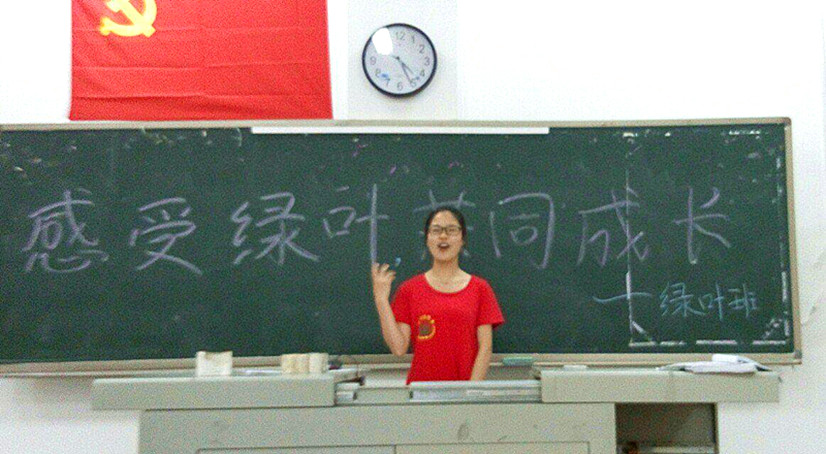 感受绿叶,共同成长
—绿叶班